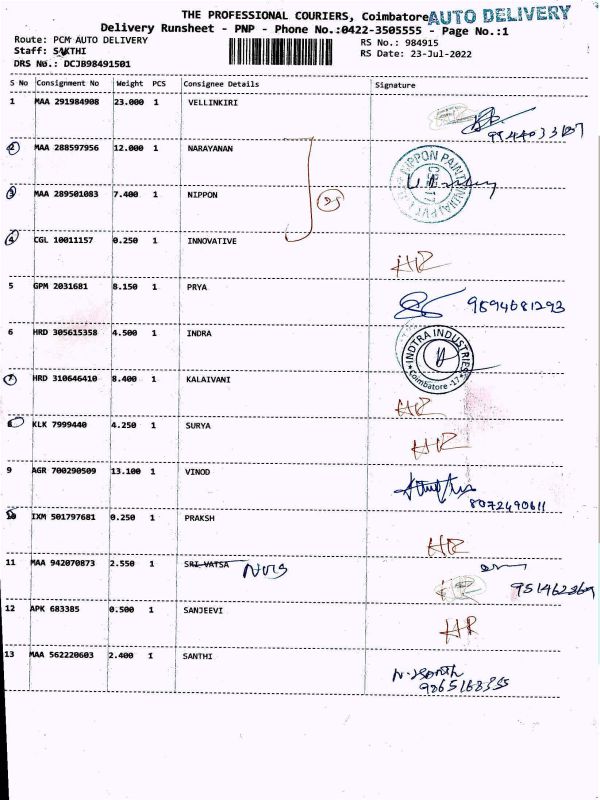 THE PROFESSIONAL COURIERS, Coimbatore AUTO DELIVERY
Delivery Runsheet - PNP - Phone No.:0422-3505555 - Page No.:1
Route: PCM AUTO DELIVERY RS No.: 984915
Staff: SAKTHI RS Date: 23-Jul-2022
DRS No.: DCJB98491501
S No Consignment No Weight PCS Consignee Details Signature
1 MAA 291984908 23.000 1 VELLINKIRI
2 MAA 288597956 12.000 1 NARAYANAN
NIPPON PAINT
3 MAA 289501083 7.400 1 NIPPON
4 CGL 10011157 0.250 1 INNOVATIVE
HR
5 GPM 2031681 8.150 1 PRYA
9894681293
6 HRD 305615358 4.500 1 INDRA
INDTRA INDUSTRIES
Coimbatore -17
7 HRD 310646410 8.400 1 KALAIVANI
HR
8 KLK 7999440 4.250 1 SURYA
HR
9 AGR 700290509 13.100 1 VINOD
8072490611
10 IXM 501797681 0.250 1 PRAKSH
HR
11 MAA 942070873 2.550 1 SRI VATSA
12 APK 683385 0.500 1 SANJEEVI
HR
13 MAA 562220603 2.400 1 SANTHI